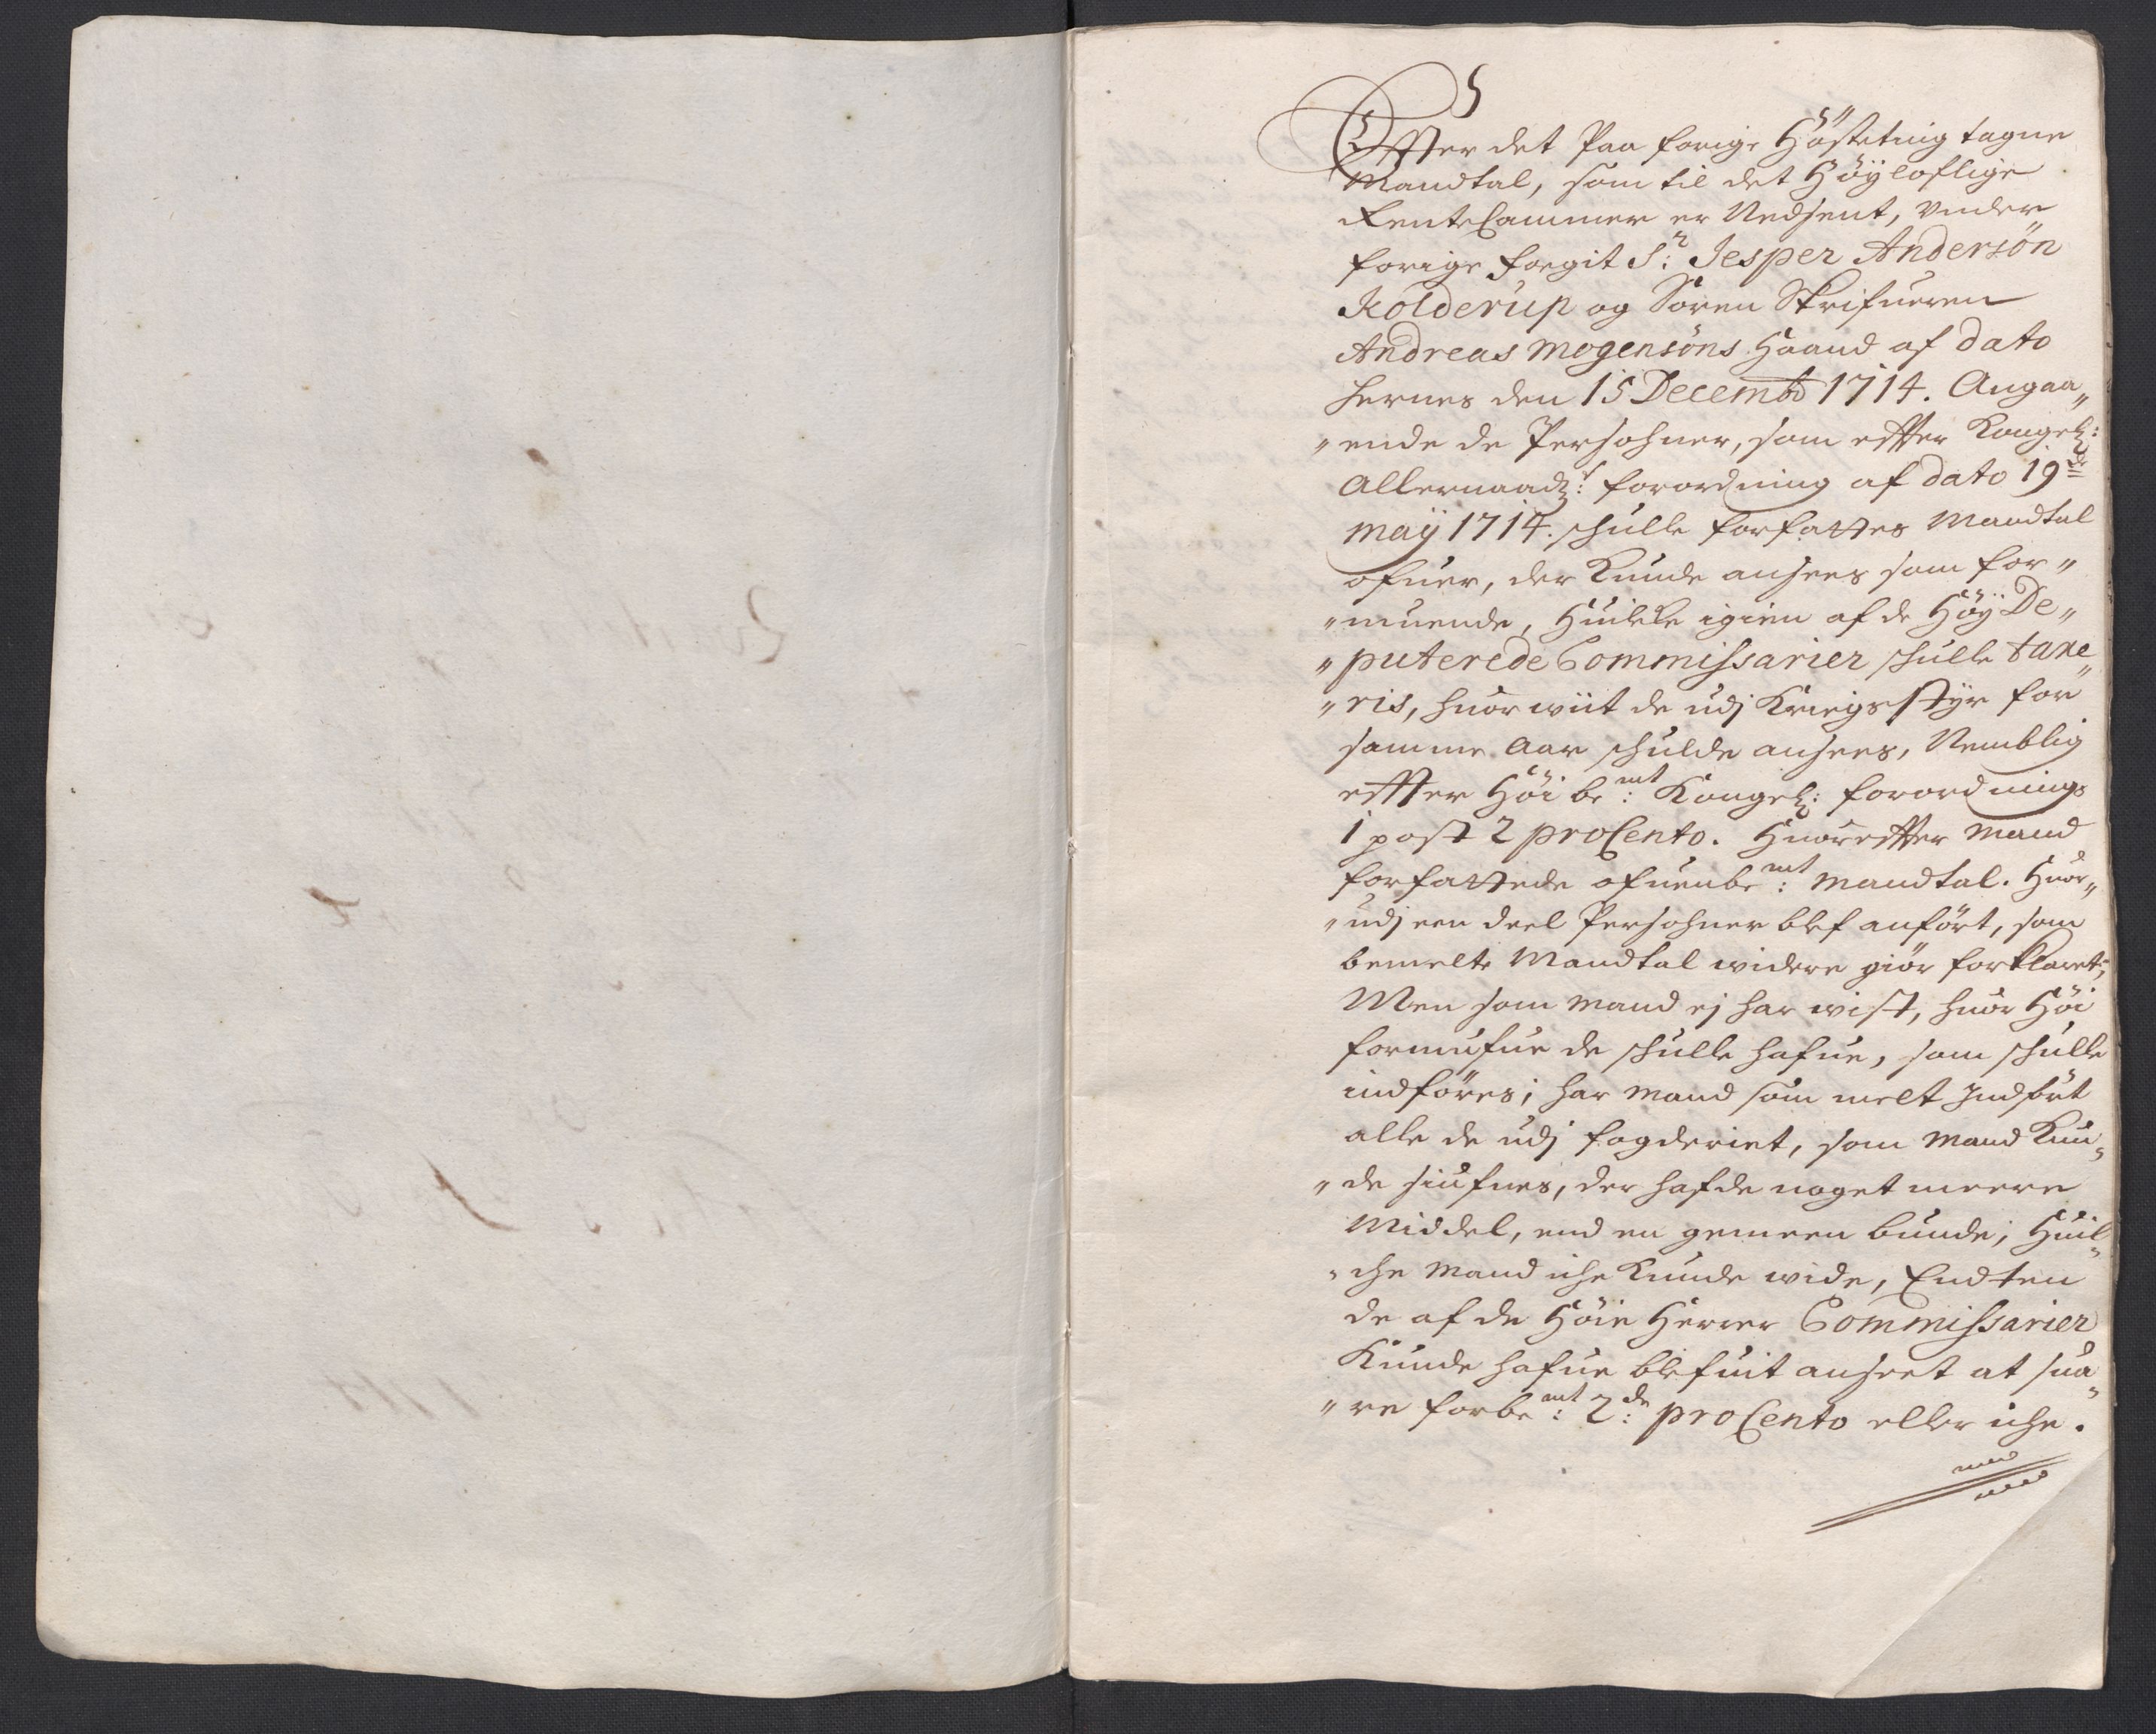 Effter det Paa forige Høsteting tagne
Mandtal, som til det Høyloflige
RenteCammer er Nedsent, under
forige fogit Sr: Jesper Andersøn
Kolderup og Soren Skrifueren
Andreas Mogensøns Haand af dato
Hernes den 15 Decembr 1714. Angaa„
„ende de Persohner, som effter Kongel:
Allernaadst: forordning af dato 19de
maÿ 1714. schulle forfattes Mandtal
ofuer, der Kunde ansees som for„
„muende, Huilke igien af de HøÿDe„
„puterede Commissarier schulle taxe„
„ris, huor wiit de udj Kriegs stÿr for
samme Aar schulde ansees, Nemblig
effter Høibemt: Kongel: forordnings
1 post 2 proCento. Huoreffter mand
forfattede ofuenbemt: mandtal. Huor„
„udj een deel Persohner blef anført, som
bemelte Mandtal widere giør forklaret;
Men som mand ej har wist, huor Høi
formufue de schulle hafue, som schulle
indføres; har mand som melt Indført
alle de udj fogderiet, som mand Kun„
„de siufnes, der hafde noget meere
Middel, end en gemeen bunde; Huil„
„che mand iche Kunde wide, Endten
de af de Høie Herrer Commissarier
Kunde hafue blefuit anseet at sua„
„re forbemt: 2de: proCento eller iche.